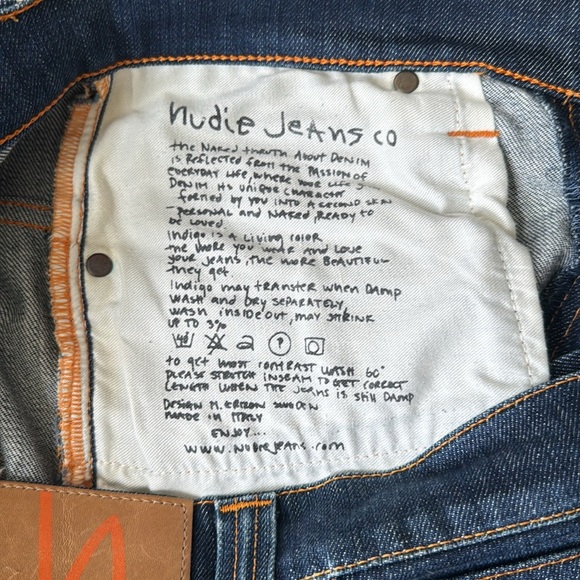 Nudie Jeans co
the NAKed thruth About DENIM
is REflected from the PASSION of
EVERYDAY LiFE, WHERE YOUR LiFE
DENIM its UNiQUE CHARACTER
formed by you INTO A SECOND SKIN
PERSONAL AND NAKED, READY to
be Loved.
Indigo is A Living color
the More You WEAR AND LOVE
your JEANS, the More BEAUTIFUL
they get.
Indigo may TRANSfer when DAMP
WASH AND DRY SEPARATELY,
WASH inside out, may SHRINK
UP TO 3%
to get most contrast WASH 60°
PLEASE STRETCH INSEAM TO GET CORRECT
LENGTH WHEN THE JEANS is still DAMP
DESIGN M. ERIXON SWEDEN
MADE IN ITALY
ENJOY...
WWW.NudieJeans.com